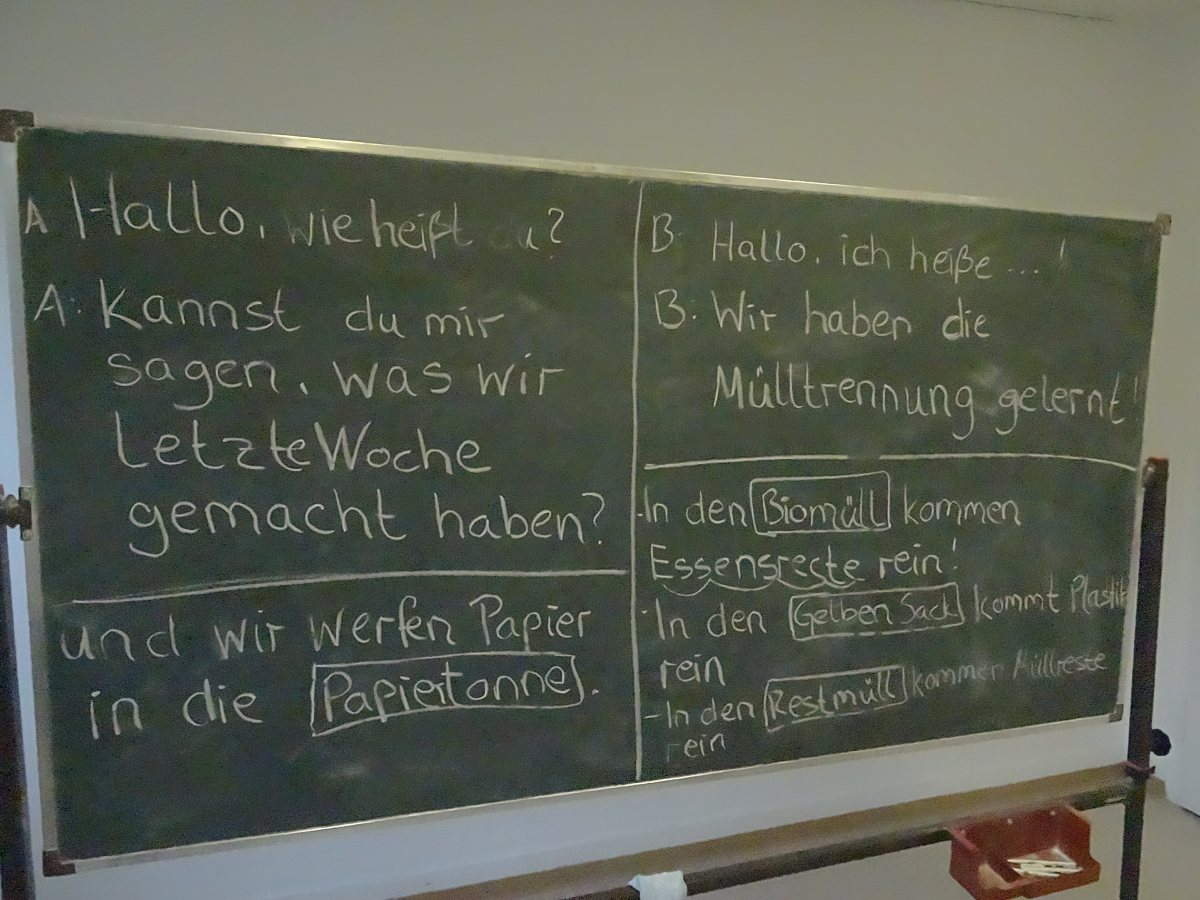 A Hallo, wie heißt u?
A: Kannst du mir
sagen, was wir
letzte Woche
gemacht haben?
und wir werfen Papier
in die Papiertonne.
B: Hallo, ich heiße ... !
B: Wir haben die
Mülltrennung gelernt!
-In den Biomüll kommen
Essensreste rein!
-In den Gelben Sack kommt Plastik
rein
-In den Restmüll kommen Müllreste
rein